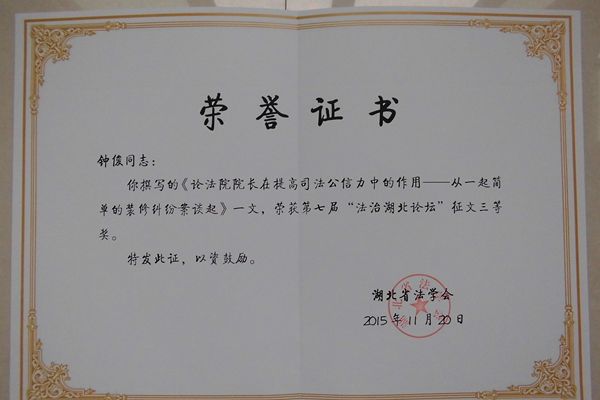 荣誉证书
钟俊同志：
你撰写的《论法院院长在提高司法公信力中的作用——从一起简
单的装修纠纷案谈起》一文，荣获第七届“法治湖北论坛”征文三等
奖。
特发此证，以资鼓励。
湖北省法学会
2015年11月20日